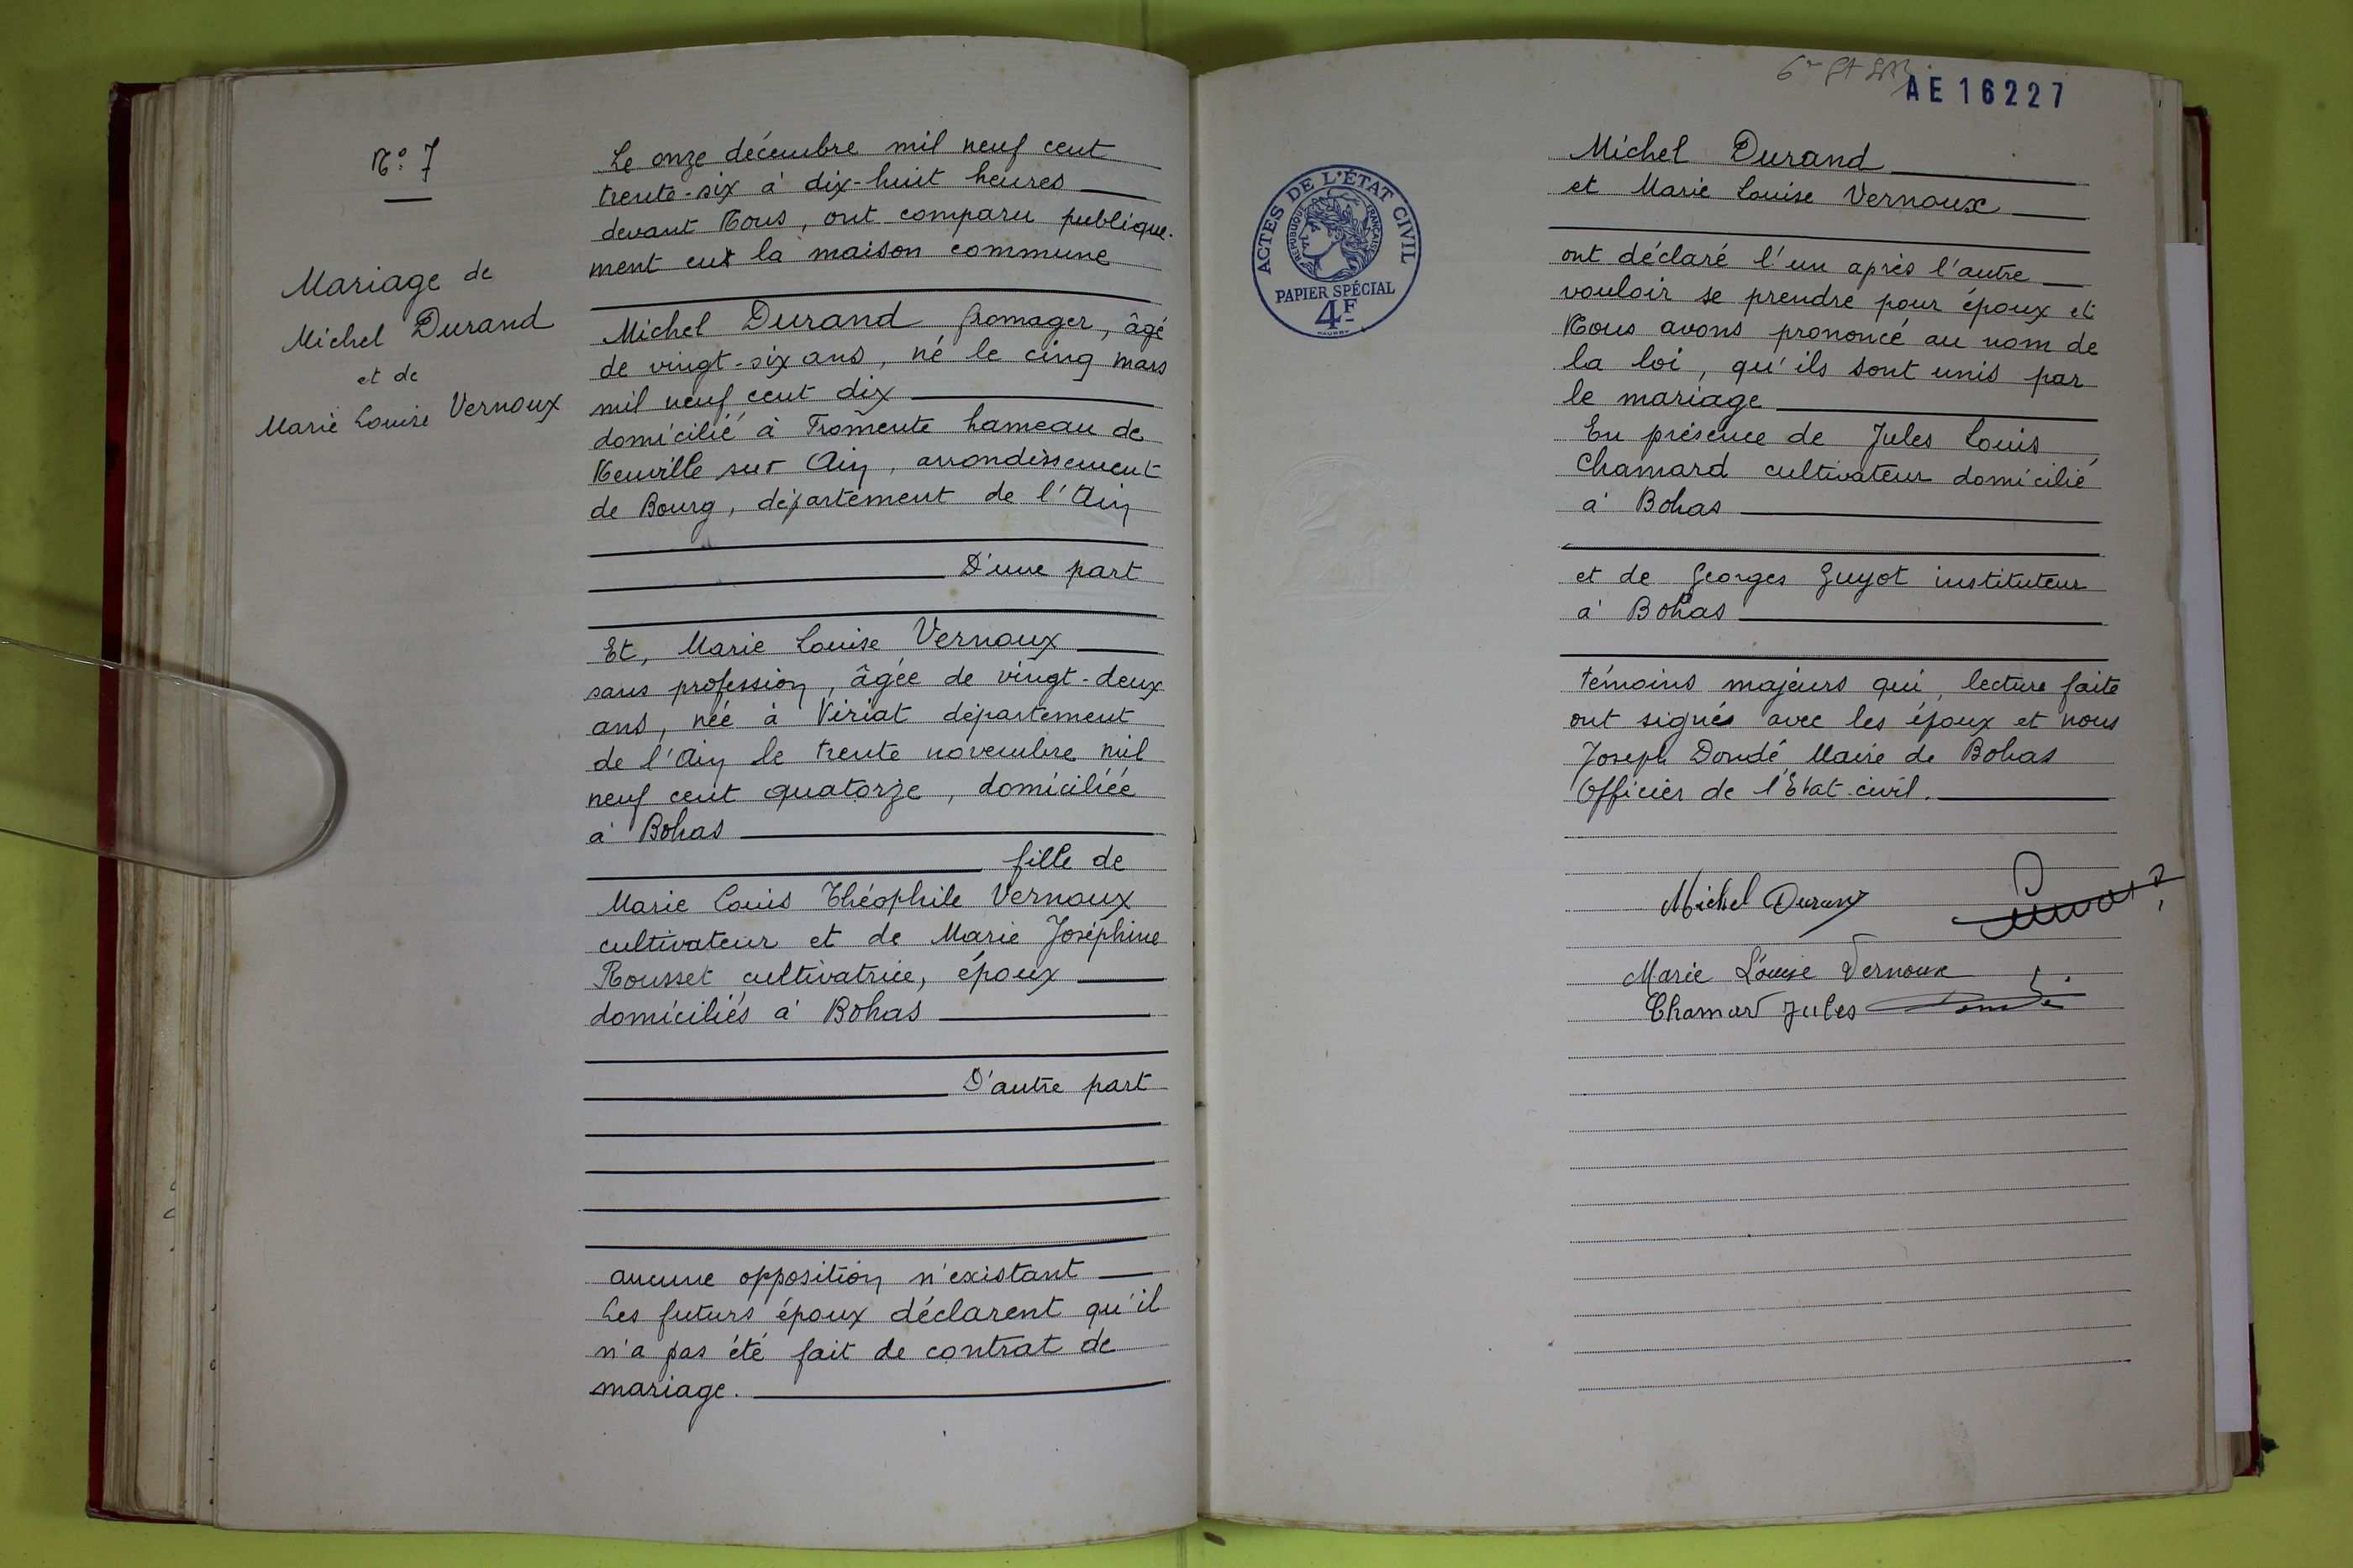 N° 7
Mariage de
Michel Durand
et de
Marie Louise Vernoux
Le onze décembre mil neuf cent
trente-six à dix-huit heures
devant Nous, ont comparu publique-
ment en la maison commune
Michel Durand fromager, âgé
de vingt-six ans, né le cinq mars
mil neuf cent dix
domicilié à Fromente hameau de
Neuville sur Ain, arrondissement
de Bourg, département de l'Ain
D'une part
Et, Marie Louise Vernoux
sans profession, âgée de vingt-deux
ans, née à Viriat département
de l'Ain le trente novembre mil
neuf cent quatorze, domiciliée
à Bohas
fille de
Marie Louis Théophile Vernoux
cultivateur et de Marie Joséphine
Rousset cultivatrice, époux
domiciliés à Bohas
D'autre part
aucune opposition n'existant
Les futurs époux déclarent qu'il
n'a pas été fait de contrat de
mariage.
AE 16227
ACTES DE L'ÉTAT CIVIL
RÉPUBLIQUE FRANÇAISE
PAPIER SPÉCIAL
4F
Michel Durand
et Marie Louise Vernoux
ont déclaré l'un après l'autre
vouloir se prendre pour époux et
Nous avons prononcé au nom de
la loi, qu'ils sont unis par
le mariage
En présence de Jules Louis
Chamard cultivateur domicilié
à Bohas
et de Georges Guyot instituteur
à Bohas
témoins majeurs qui, lecture faite
ont signés avec les époux et nous
Joseph Dondé Maire de Bohas
Officier de l'Etat-civil.
Michel Durand
Marie Louise Vernoux
Chamard Jules